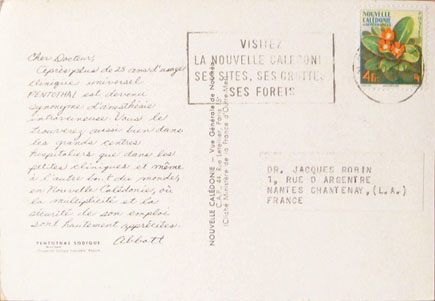 Cher Docteur,
Après plus de 25 ans d'usage
clinique universel
PENTOTHAL est devenu
synonyme d'anesthésie
intraveineuse. Vous le
trouverez aussi bien dans
les grands centres
hospitaliers que dans les
petites cliniques et même
à l'autre bout du monde,
en Nouvelle Calédonie, où
la multiplicité et la
sécurité de son emploi
sont hautement appréciées.
Abbott
PENTOTHAL SODIQUE
NOUVELLE CALÉDONIE - Vue Générale de Nouméa
(Cliché Ministère de la France d'Outre-Mer)
VISITEZ
LA NOUVELLE CALEDONI
SES SITES, SES GROTTES
SES FORETS
NOUVELLE
CALÉDONIE
4F
DR. JACQUES ROBIN
1, RUE D ARGENTRE
NANTES CHANTENAY,(L.A.)
FRANCE